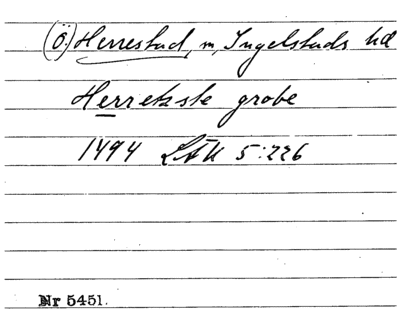 (Ö.) Herrestad, m, Ingelstads hd
Herretzste grobe
1494 LÄU 5:226
Nr 5451.